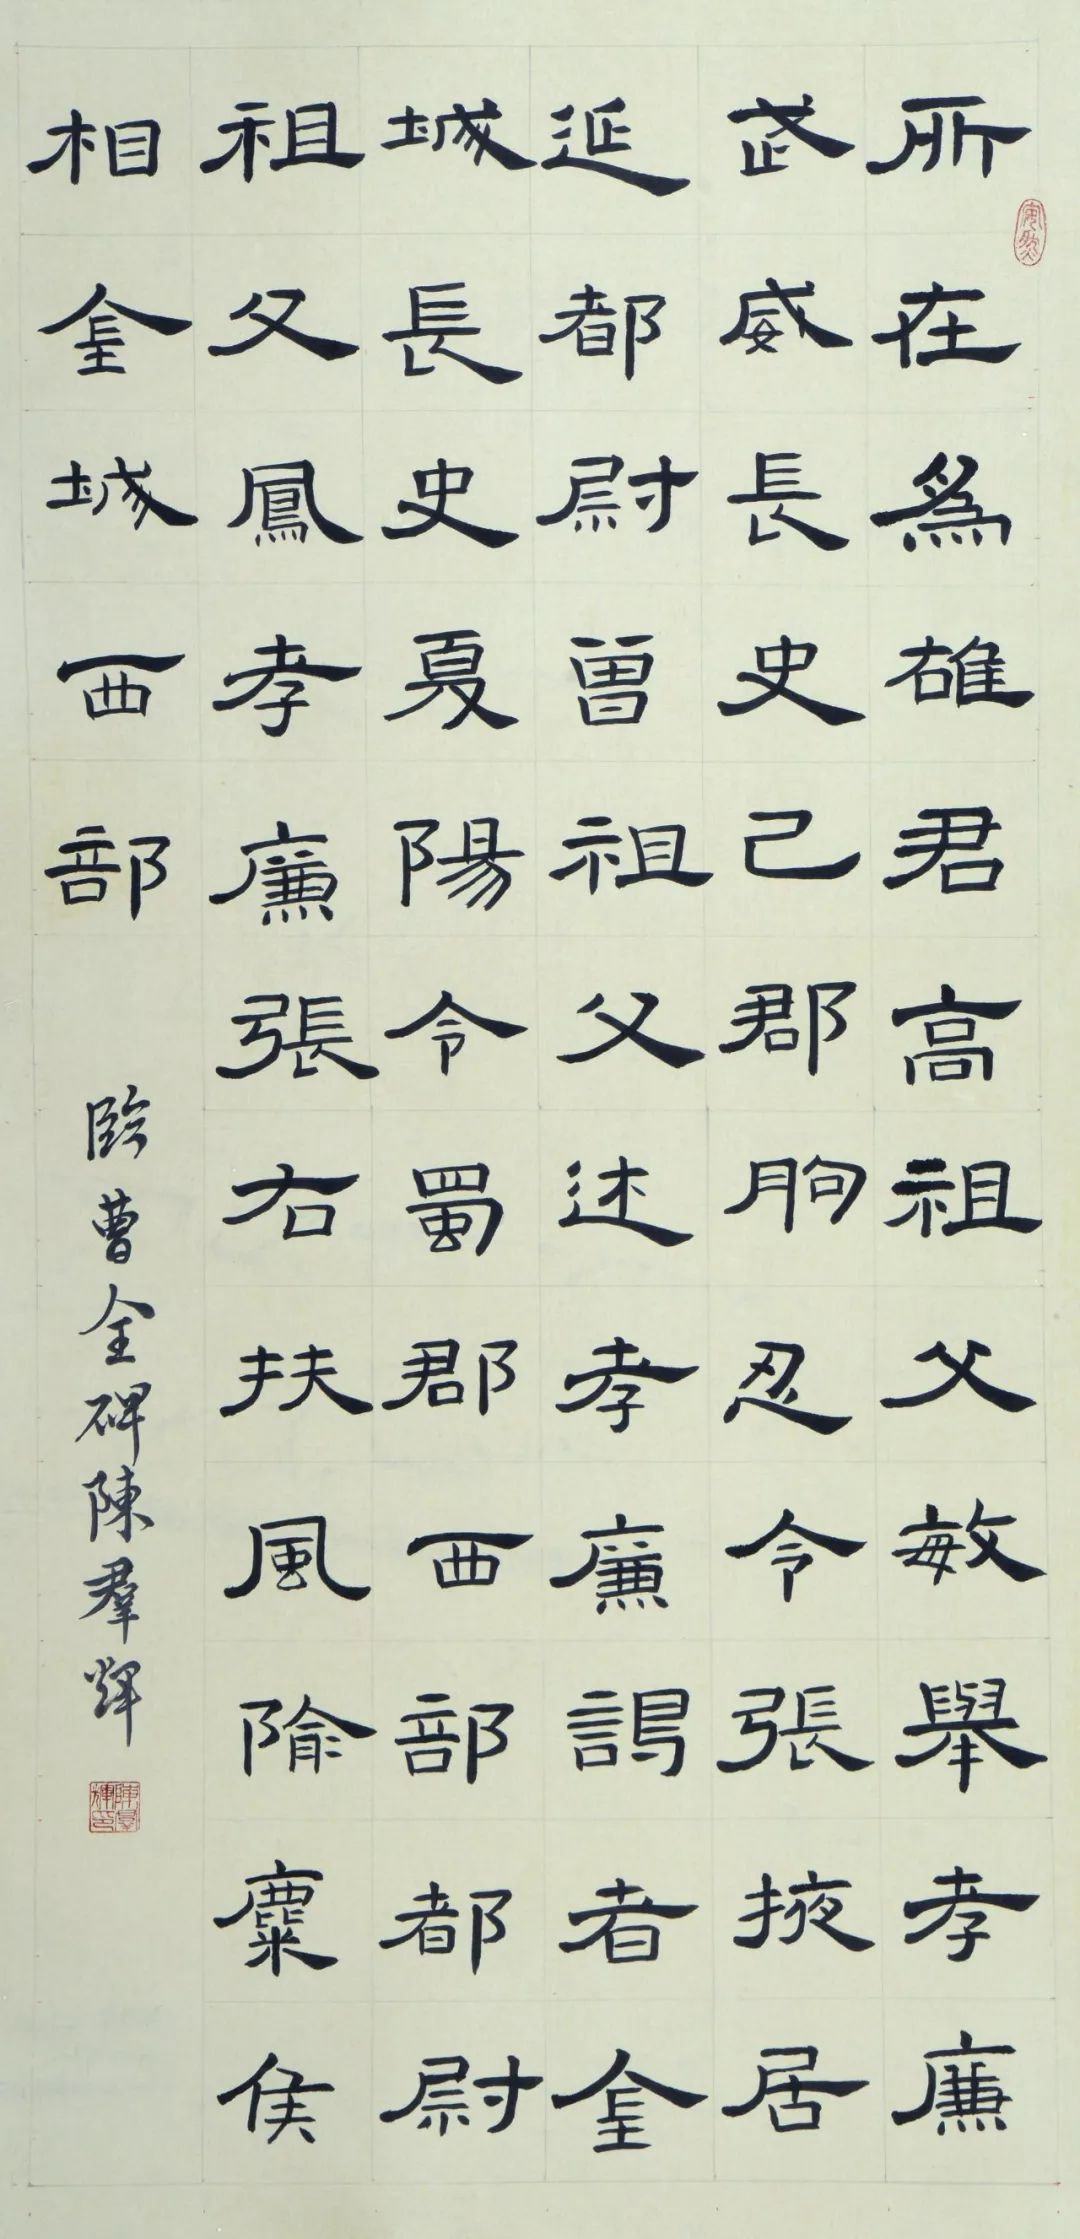 所在為雄君高祖父敏舉孝廉
武威長史巴郡朐忍令張掖居
延都尉曾祖父述孝廉謁者金
城長史夏陽令蜀郡西部都尉
祖父鳳孝廉張右扶風隃麋侯
相金城西部
臨曹全碑陳羣輝